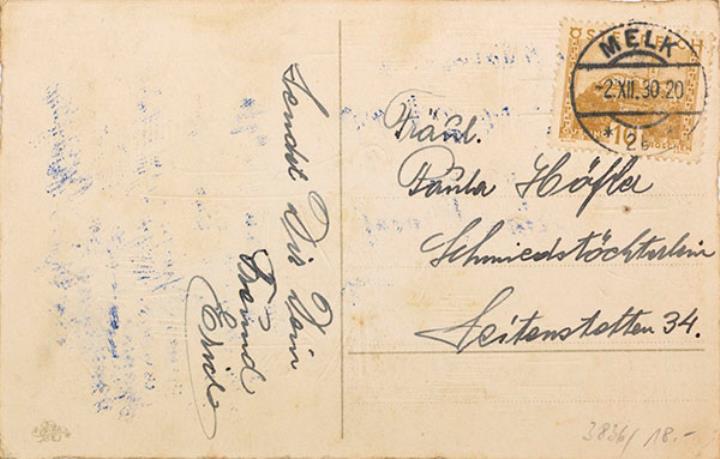 Sendet Dir Dein
Freund
Erich
ÖSTERREICH
10
GROSCHEN
MELK
-2.XII.30.20
* 2
Fräul.
Paula Höfla
Schmiedstöchterlein
Seitenstetten 34.
3836/18.-